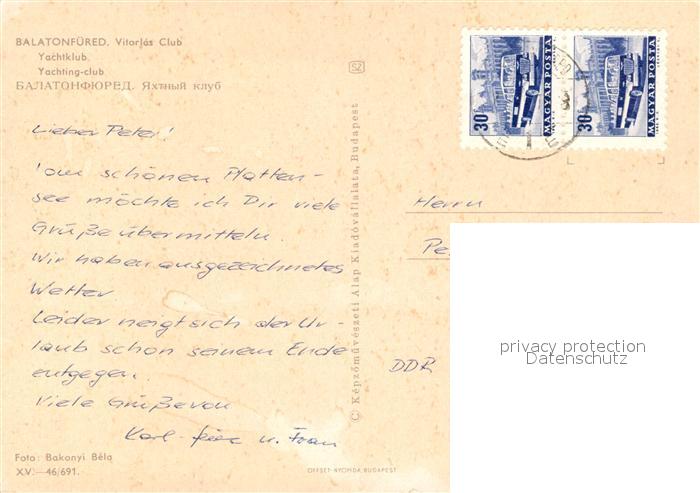 BALATONFÜRED. Vitorlás Club
Yachtklub
Yachting-club
БАЛАТОНФЮРЕД. Яхтный клуб
Lieber Peter!
Vom schönen Platten-
see möchte ich Dir viele
Grüße übermitteln.
Wir haben ausgezeichnetes
Wetter
Leider neigt sich der Ur-
laub schon seinem Ende
entgegen.
Viele Grüße von
Karl- u. Frau
Foto: Bakonyi Béla
XV.—46/691.
SZ
© Képzőművészeti Alap Kiadóvállalata, Budapest
OFFSET-NYOMDA, BUDAPEST
30
MAGYAR POSTA
30
MAGYAR POSTA
Herrn
Pe
DDR
privacy protection
Datenschutz